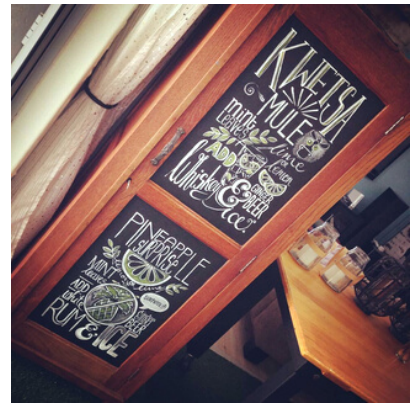 KWETSA
MULE
mint
LEAVES
lime
OR
LEMON
ADD
GINGER
BEER
Whiskey &
ice
PINEAPPLE
SURPRISE
MINT
leaves
lime
ADD
white
RUM
& ICE